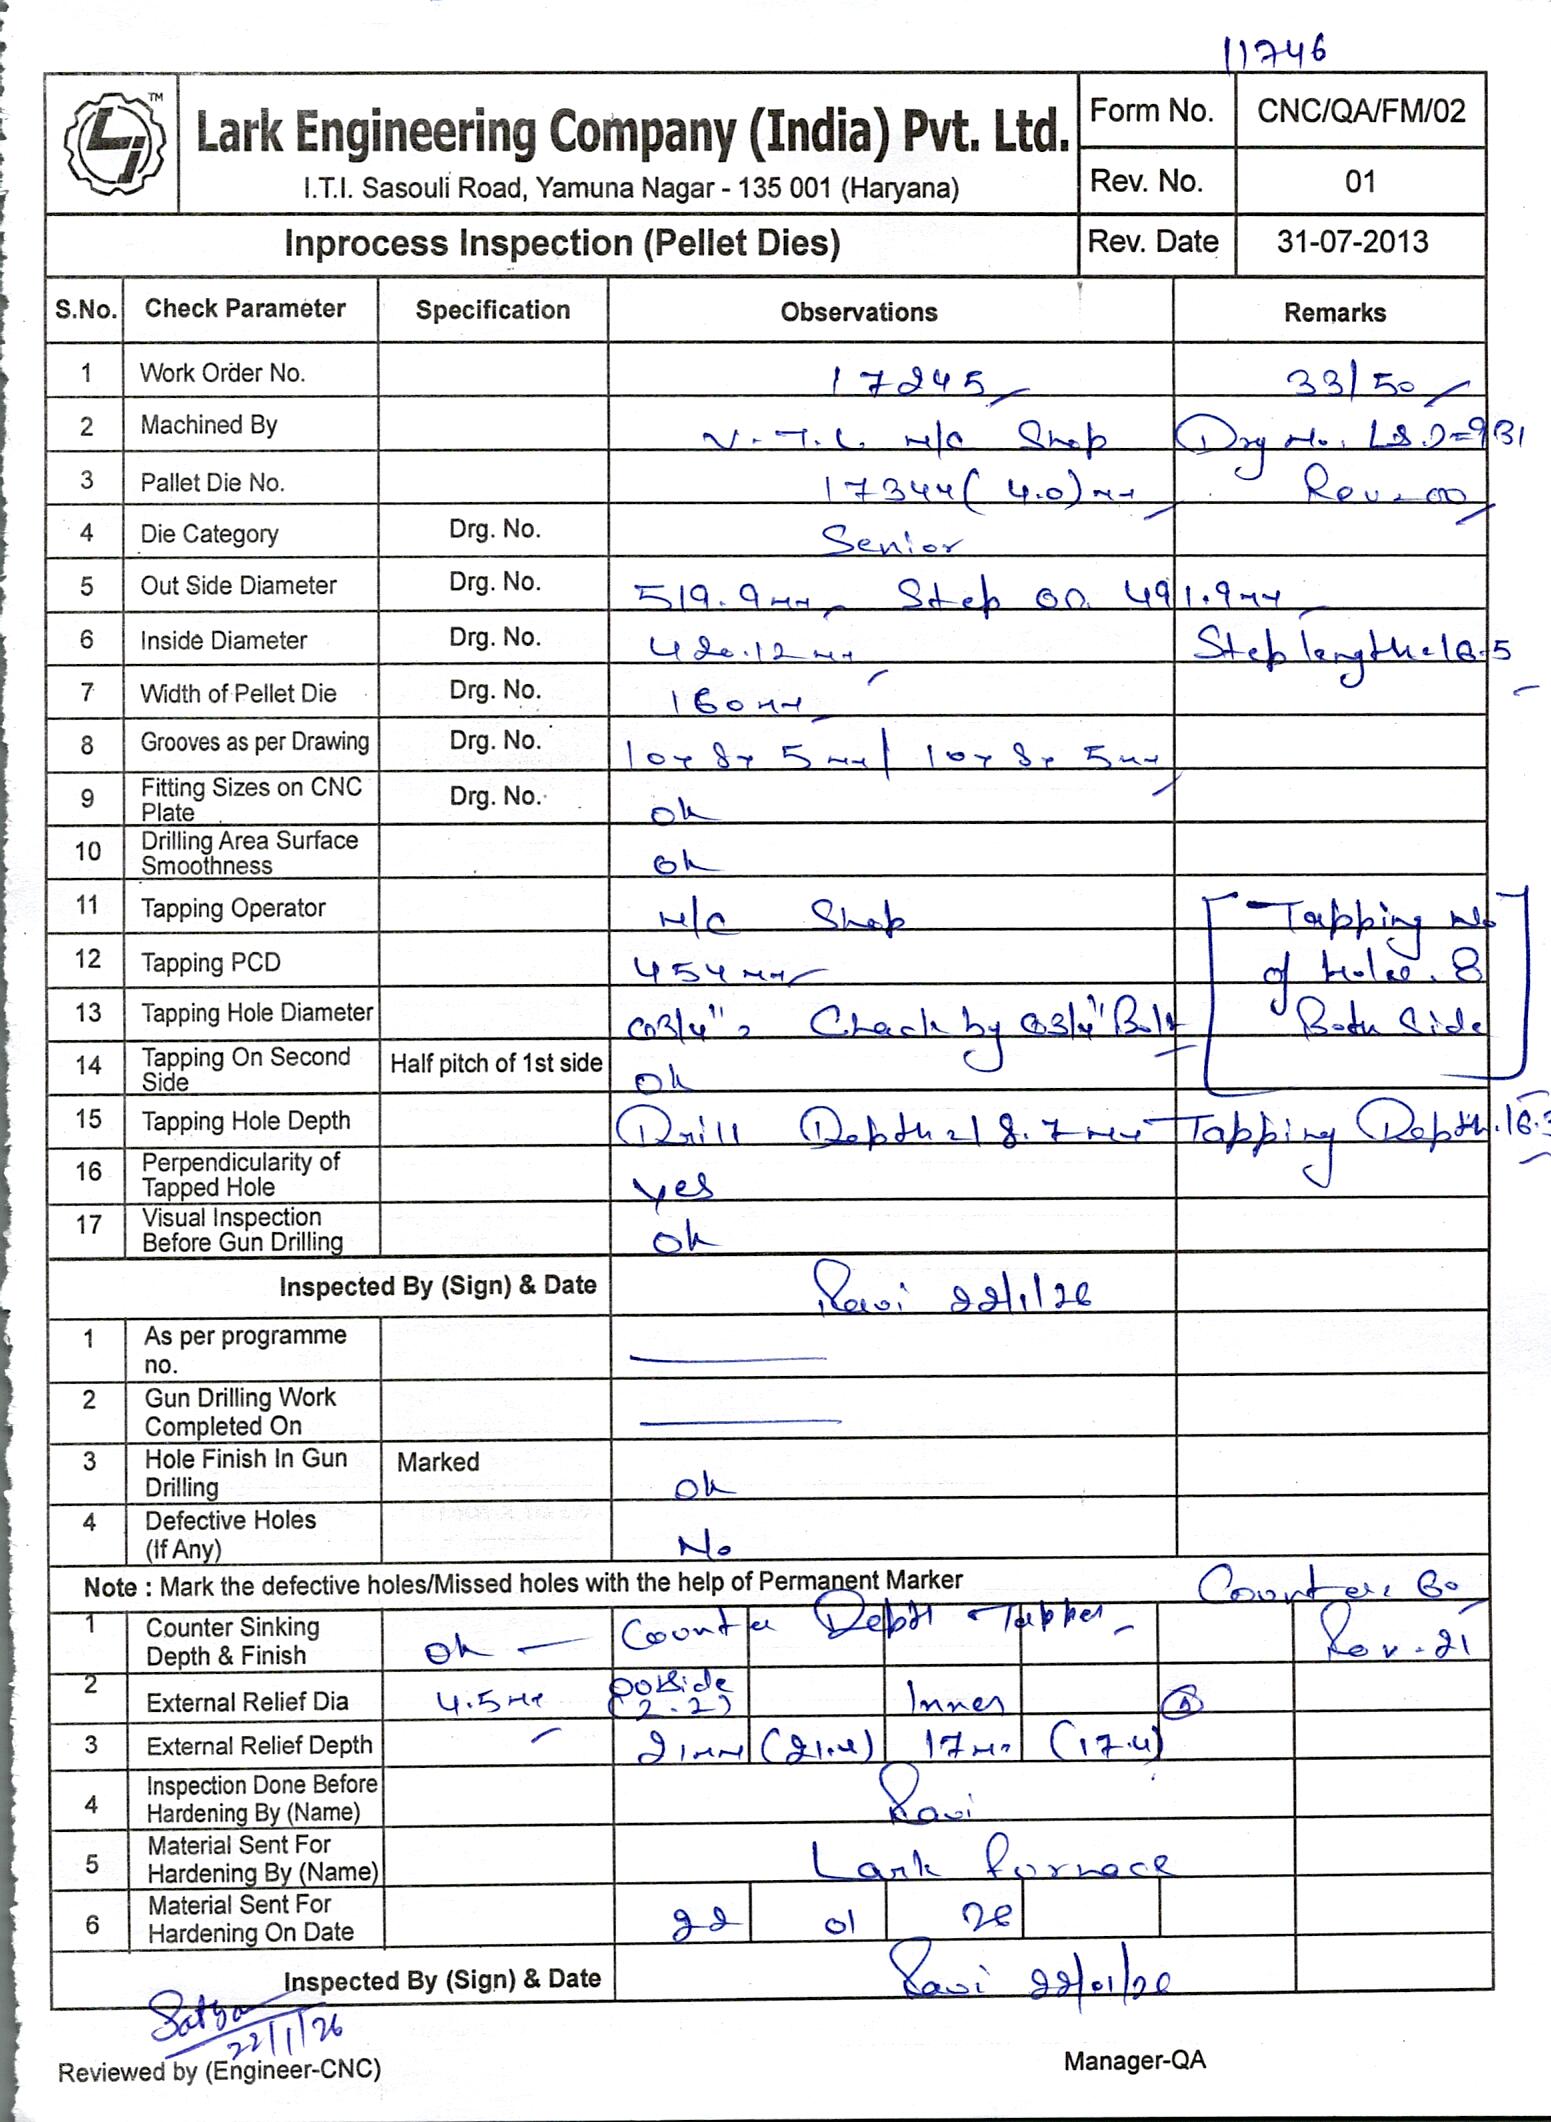 11746
LJ TM
Lark Engineering Company (India) Pvt. Ltd.
I.T.I. Sasouli Road, Yamuna Nagar - 135 001 (Haryana)
Form No. CNC/QA/FM/02
Rev. No. 01
Inprocess Inspection (Pellet Dies) Rev. Date 31-07-2013
S.No. Check Parameter Specification Observations Remarks
1 Work Order No. 17245 33/50
2 Machined By V.T.L. M/C Shop Drg No. LSD=931
3 Pallet Die No. 17344 (4.0) mm Rev-00
4 Die Category Drg. No. Senior
5 Out Side Diameter Drg. No. 519.9mm Step OD. 491.9mm
6 Inside Diameter Drg. No. 420.12mm Step length=16.5
7 Width of Pellet Die Drg. No. 160mm
8 Grooves as per Drawing Drg. No. 10x8x5mm / 10x8x5mm
9 Fitting Sizes on CNC Plate Drg. No. Ok
10 Drilling Area Surface Smoothness Ok
11 Tapping Operator M/C Shop Tapping No
12 Tapping PCD 454mm of hole. 8
13 Tapping Hole Diameter Ø3/4" = Check by Ø3/4" Bolt Both Side
14 Tapping On Second Side Half pitch of 1st side Ok
15 Tapping Hole Depth Drill Depth=18.7mm Tapping Depth.16.3
16 Perpendicularity of Tapped Hole Yes
17 Visual Inspection Before Gun Drilling Ok
Inspected By (Sign) & Date Ravi 22/1/26
1 As per programme no.
2 Gun Drilling Work Completed On
3 Hole Finish In Gun Drilling Marked Ok
4 Defective Holes (If Any) No
Note : Mark the defective holes/Missed holes with the help of Permanent Marker Counter: 60
1 Counter Sinking Depth & Finish Ok Counter Depth Tapper Rov-21
2 External Relief Dia 4.5mm outside (2.2) Inner
3 External Relief Depth 21mm (21.4) 17mm (17.4)
4 Inspection Done Before Hardening By (Name) Ravi
5 Material Sent For Hardening By (Name) Lark furnace
6 Material Sent For Hardening On Date 22 01 26
Inspected By (Sign) & Date Ravi 22/01/26
22/1/26
Reviewed by (Engineer-CNC) Manager-QA